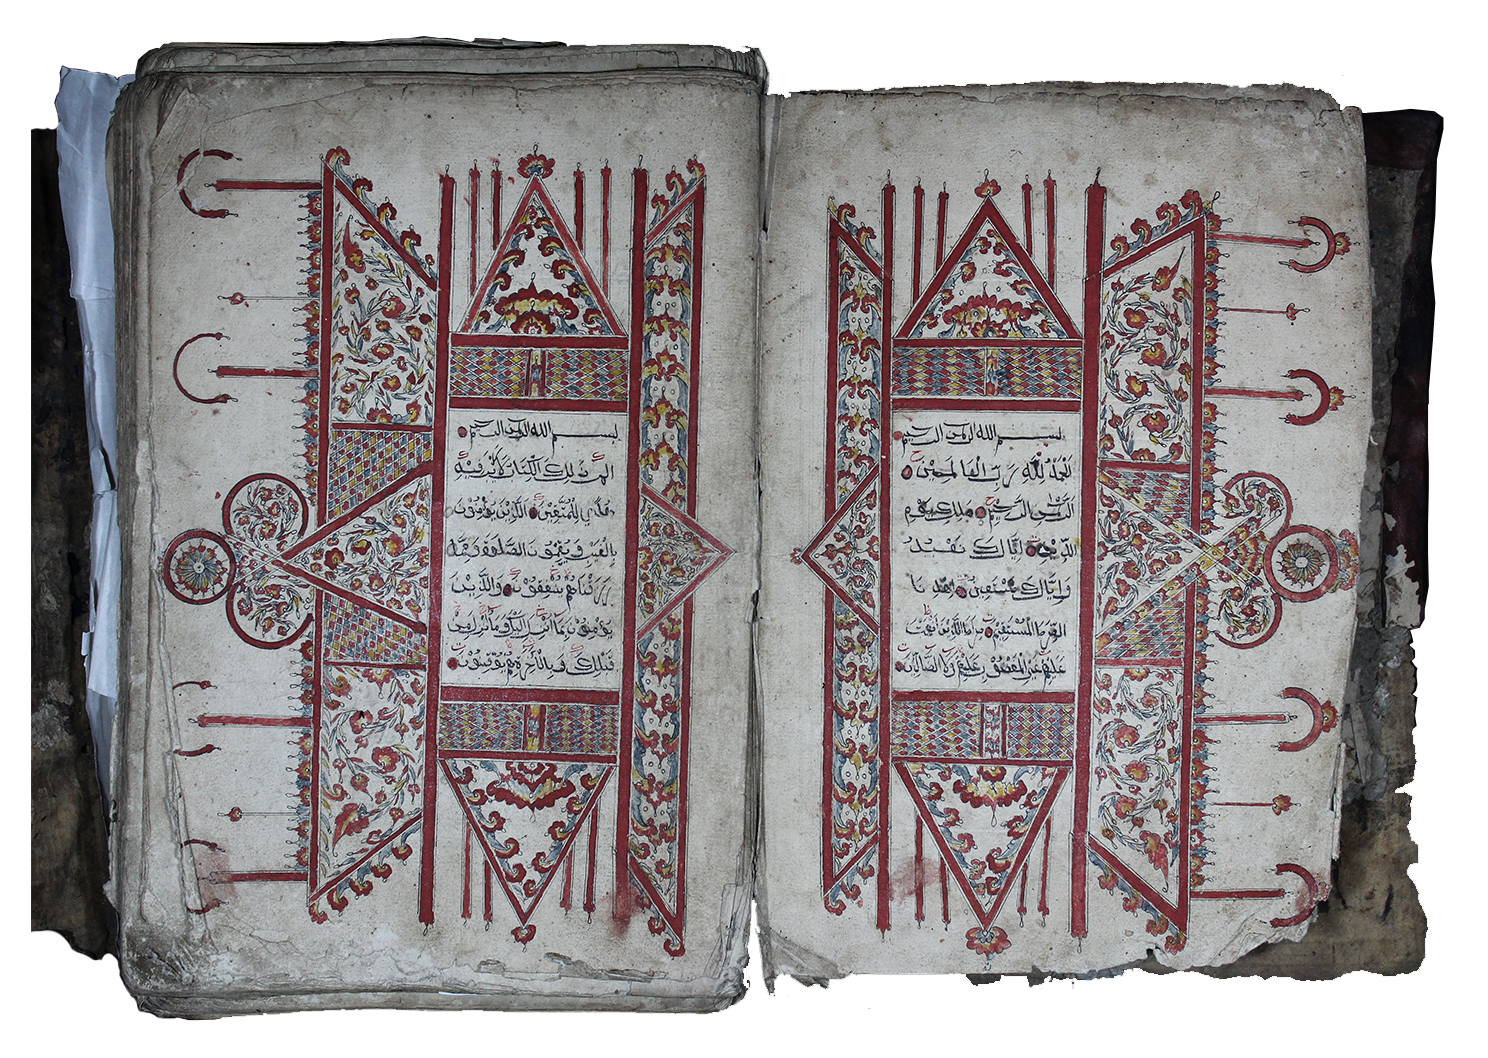 بسم الله الرحمن الرحيم
الحمد لله رب العالمين
الرحمن الرحيم ملك يوم
الدين اياك نعبد
واياك نستعين اهدنا
الصراط المستقيم صراط الذين انعمت
عليهم غير المغضوب عليهم ولا الضالين
بسم الله الرحمن الرحيم
الم ذلك الكتاب لا ريب فيه
هدى للمتقين الذين يؤمنون
بالغيب ويقيمون الصلوة ومما
رزقناهم ينفقون والذين
يؤمنون بما انزل اليك وما انزل من
قبلك وبالاخرة هم يوقنون